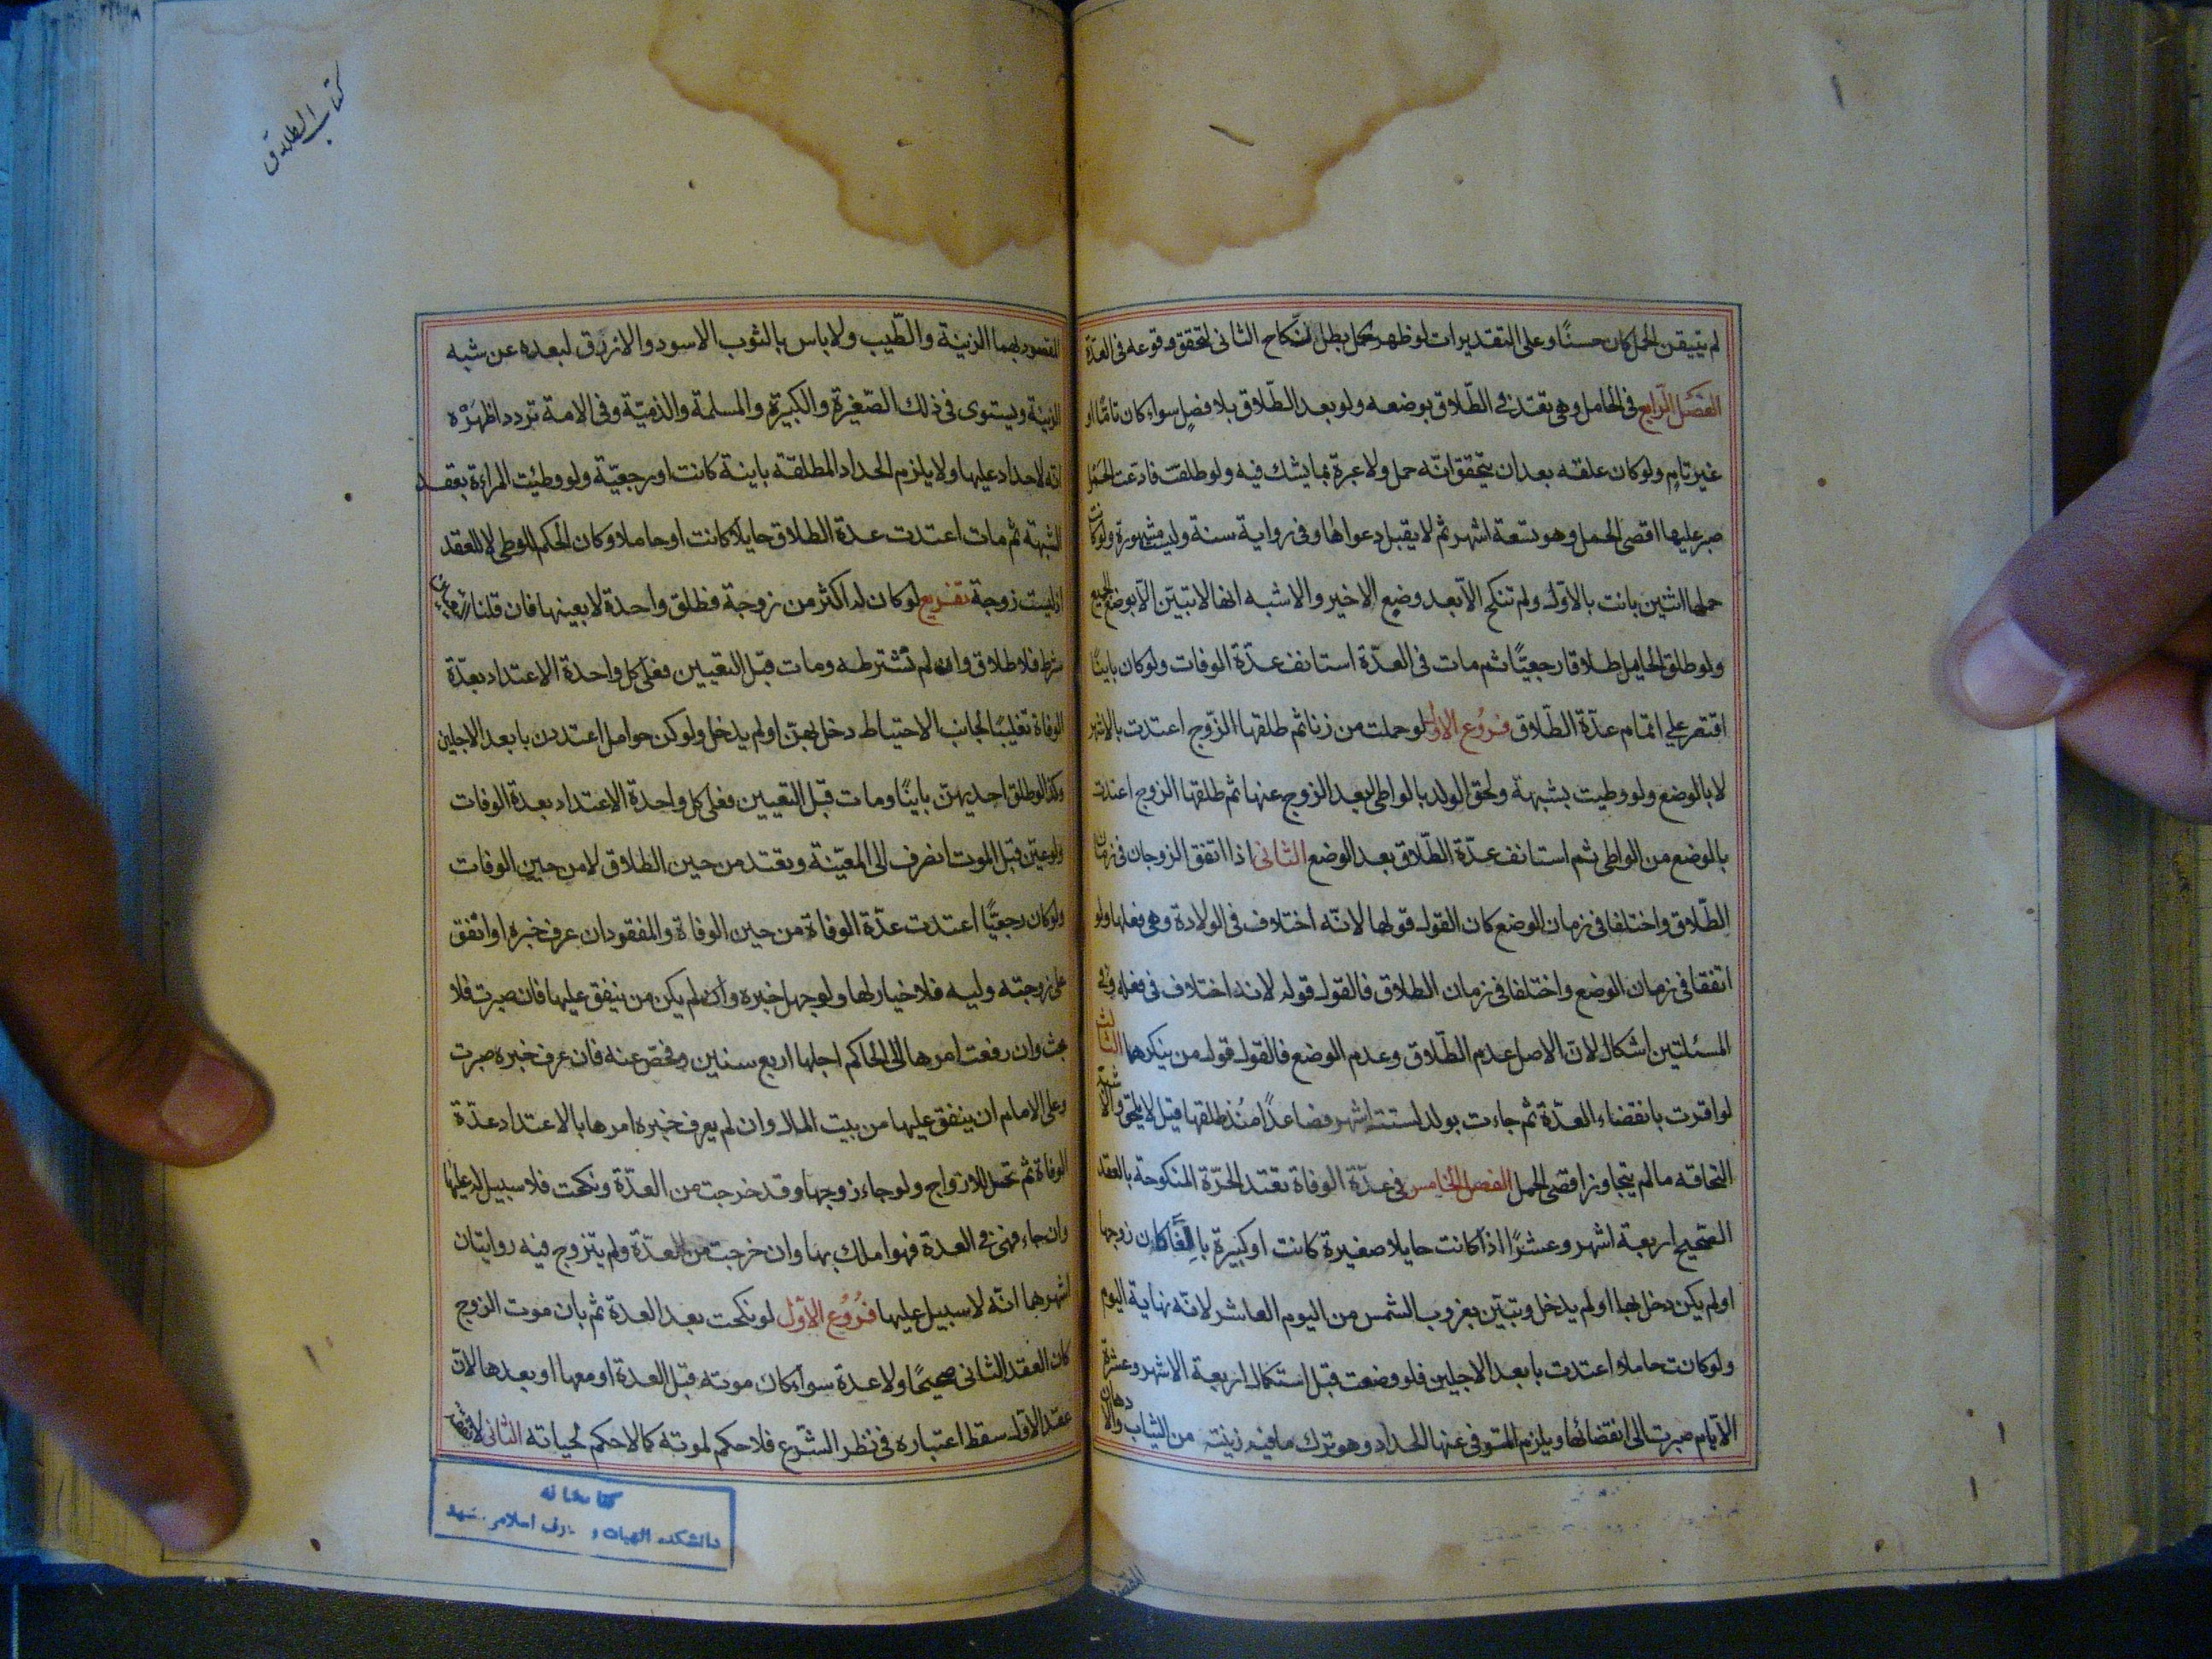 لم يتيقن الحمل كان حسنًا وعلى التقديرات لو ظهر حمل بطل النكاح الثانى لتحقق وقوعه فى العدّة
الفصل الرابع فى الحامل وهى تعتد فى الطّلاق بوضعه ولو بعد الطّلاق بلا فصلٍ سواء كان تامًّا او
غير تامٍ ولو كان علقه بعد ان يتحقق انّه حمل ولا عبرة بما يشك فيه ولو طلقت فادعت الحمل
صبر عليها اقصى الحمل وهو تسعة اشهر ثم لا يقبل دعواها وفى رواية سنة وليست مشهورة ولو كان
حملها اثنين بانت بالاوّل ولم تنكح الّا بعد وضع الاخير والاشبه انها لا تبيّن الّا بوضع الجميع
ولو طلق الحامل طلاقا رجعيًّا ثم مات فى العدّة استانفت عدّة الوفات ولو كان باينًا
اقتصر على اتمام عدّة الطّلاق فروع الاول لو حملت من زنا ثم طلقها الزّوج اعتدت بالاشهر
لا بالوضع ولو وطيت بشبهة ولحق الولد بالواطى لبعد الزوج عنها ثم طلقها الزوج اعتدت
بالوضع من الواطى ثم استانفت عدّة الطّلاق بعد الوضع الثانى اذا اتفق الزوجان فى زمان
الطّلاق واختلفا فى زمان الوضع كان القول قولها لانّه اختلاف فى الولادة وهى فعلها ولو
اتفقا فى زمان الوضع واختلفا فى زمان الطلاق فالقول قوله لانه اختلاف فى فعله وفى
المسئلتين اشكال لان الاصل عدم الطّلاق وعدم الوضع فالقول قول من ينكرهما الثالث
لو اقرت بانقضاء العدّة ثم جاءت بولد لستة اشهر فصاعدًا مُنذ طلقها قيل لا يلحق والاشبه
التحاقه مالم يتجاوز اقصى الحمل الفصل الخامس فى عدّة الوفاة تعتد الحرّة المنكوحة بالعقد
الصّحيح اربعة اشهر وعشرًا اذا كانت حايلا صغيرة كانت او كبيرة بالغًا كان زوجها
او لم يكن دخل بها او لم يدخل وتبيّن بغروب الشمس من اليوم العاشر لانّه نهاية اليوم
ولو كانت حاملا اعتدت بابعد الاجلين فلو وضعت قبل استكمال اربعة الاشهر وعشرة
الايّام صبرت الى انقضائها ويلزم المتوفى عنها الحداد وهو ترك ما فيه زينة من الثياب والادهان
المقصود
كتاب الطلاق
المقصود بهما الزينة والطّيب ولا باس بالثوب الاسود والازرق لبعده عن شبه
الزينة ويستوى فى ذلك الصّغيرة والكبيرة والمسلمة والذميّة وفى الامة تردد اظهره
انّه لا حداد عليها ولا يلزم الحداد المطلقة باينة كانت او رجعيّة ولو وطئت المراءة بعقد
الشبهة ثم مات اعتدت عدة الطلاق حايلا كانت او حاملا وكان الحكم للوطى لا للعقد
اذ ليست زوجة تفريع لو كان له اكثر من زوجة فطلق واحدة لا بعينها فان قلنا
شرط فلا طلاق وان لم نشترطه ومات قبل التعيين فعلى كل واحدة الاعتداد بعدّة
الوفاة تغليبًا لجانب الاحتياط دخل بهنّ او لم يدخل ولو كن حوامل اعتددن بابعد الاجلين
وكذا لو طلق احديهنّ باينًا ومات قبل التعيين فعلى كل واحدة الاعتداد بعدة الوفات
ولو عيّن قبل الموت انصرف الى المعيّنة وتعتد من حين الطلاق لا من حين الوفات
ولو كان رجعيًّا اعتدت عدّة الوفاة من حين الوفاة والمفقود ان عرف خبره او اتفق
على زوجته وليه فلا خيار لها ولو جهل خبره وان لم يكن من ينفق عليها فان صبرت فلا
بحث وان رفعت امرها الى الحاكم اجلها اربع سنين وفحص عنه فان عرف خبره صبرت
وعلى الامام ان ينفق عليها من بيت المال وان لم يعرف خبره امرها بالاعتداد عدّة
الوفاة ثم تحلّ للازواج ولو جاء زوجها وقد خرجت من العدّة ونكحت فلا سبيل له عليها
وان جاء فهى فى العدة فهو املك بها وان خرجت من العدّة ولم يتزوج فيه روايتان
اشهرهما انّه لا سبيل عليها فروع الاوّل لو نكحت بعد العدة ثم بان موت الزوج
كان العقد الثانى صحيحًا ولا عدة سواء كان موته قبل العدة او معها او بعدها لان
عقد الاوّل سقط اعتباره فى نظر الشّرع فلا حكم لموته كما لا حكم لحياته الثانى لا نفقة
كتابخانه
دانشكده الهيات و معارف اسلامى مشهد